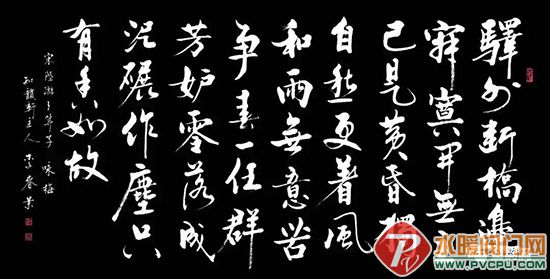 驛外斷橋邊
寂寞開無主
已是黄昏獨
自愁更着風
和雨無意苦
争春一任群
芳妒零落成
泥碾作塵只
有香如故
宋陸游卜算子 咏梅
主人 李春
水暖阀门网
WWW.PVCPU.COM